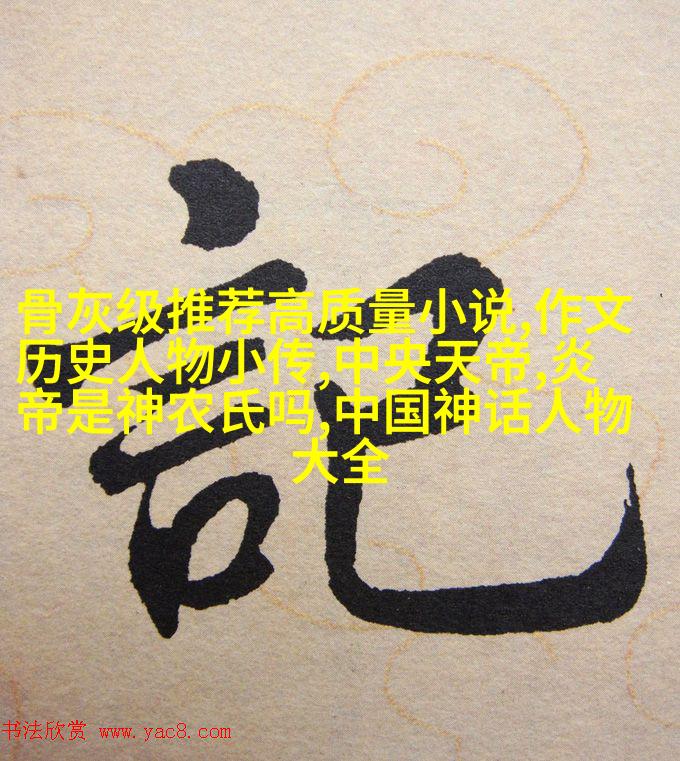 記
骨灰级推荐高质量小说,作文
历史人物小传,中央天帝,炎
帝是神农氏吗,中国神话人物
大全
书法欣赏 www.yac8.com